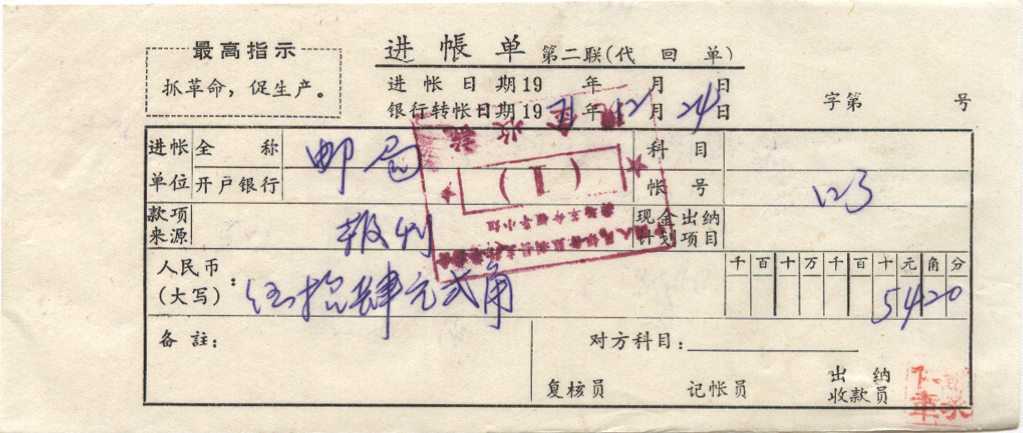 最高指示
抓革命，促生产。
进帐单 第二联(代回单)
进帐日期19 年 月 日
银行转帐日期19 年12月24日
字第 号
进帐单位 全称 邮局 科目
开户银行 帐号 123
款项来源 报刊 现金出纳计划项目
人民币(大写)： 伍拾肆元贰角
千百十万千百十元角分
5420
备註：
对方科目：
复核员 记帐员 出纳收款员
现金收讫
(1)